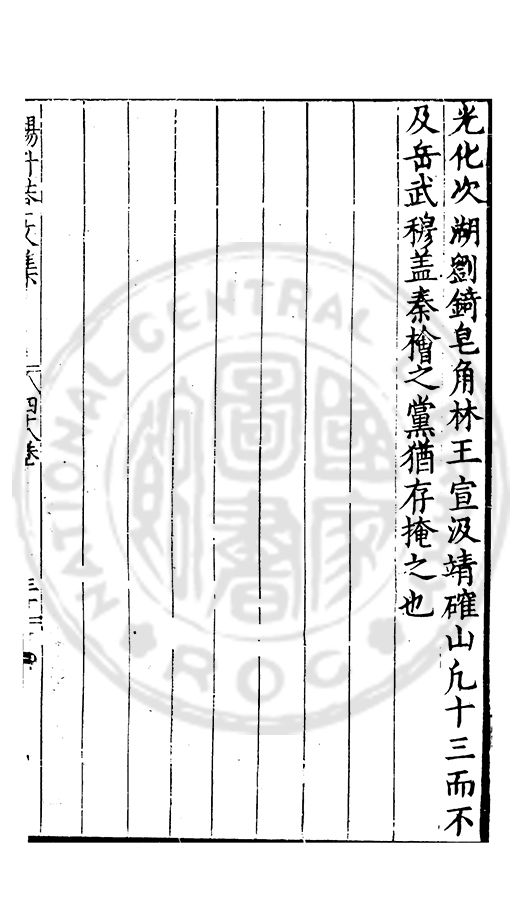 光化次湖劉錡皂角林王宣汲靖確山凡十三而不
及岳武穆盖秦檜之黨猶存掩之也
楊升菴文集
四十八卷
NATIONAL CENTRAL
圖書
ROC